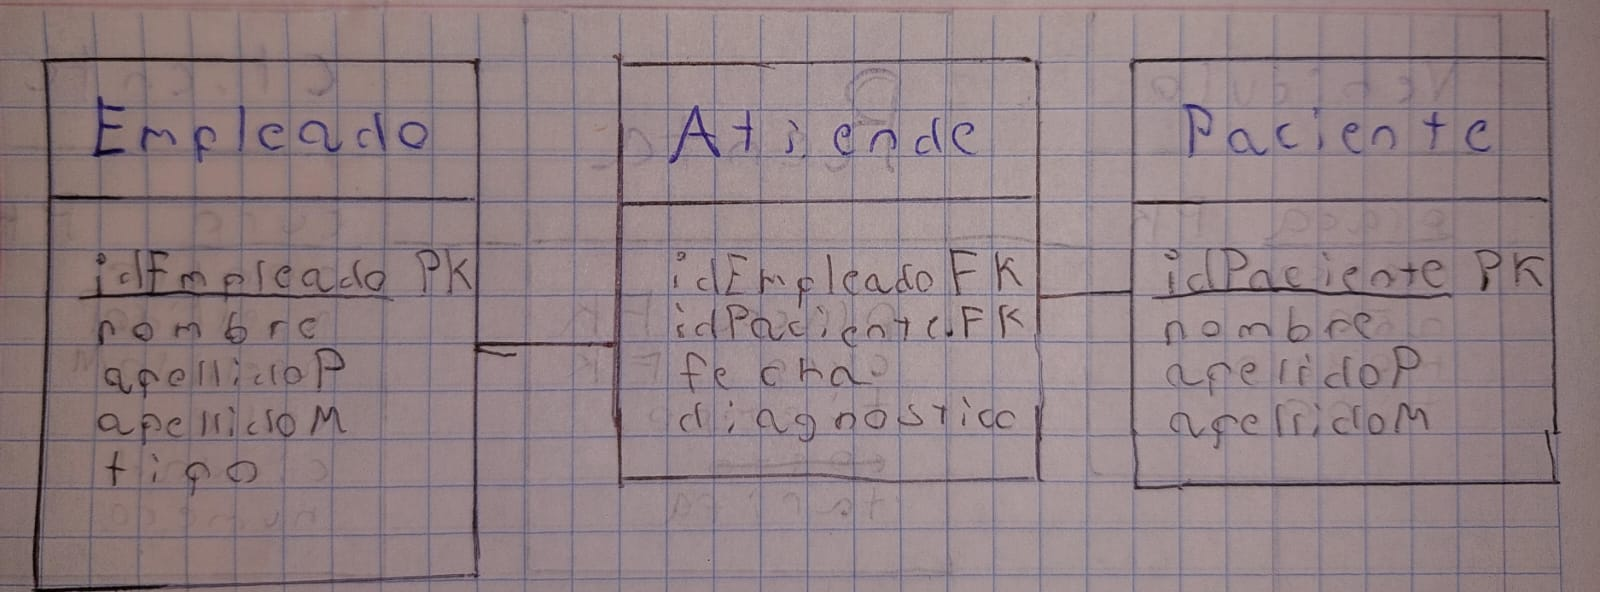 Empleado
idEmpleado PK
nombre
apellidoP
apellidoM
tipo
Atiende
idEmpleado FK
idPaciente FK
fecha
diagnostico
Paciente
idPaciente PK
nombre
apellidoP
apellidoM